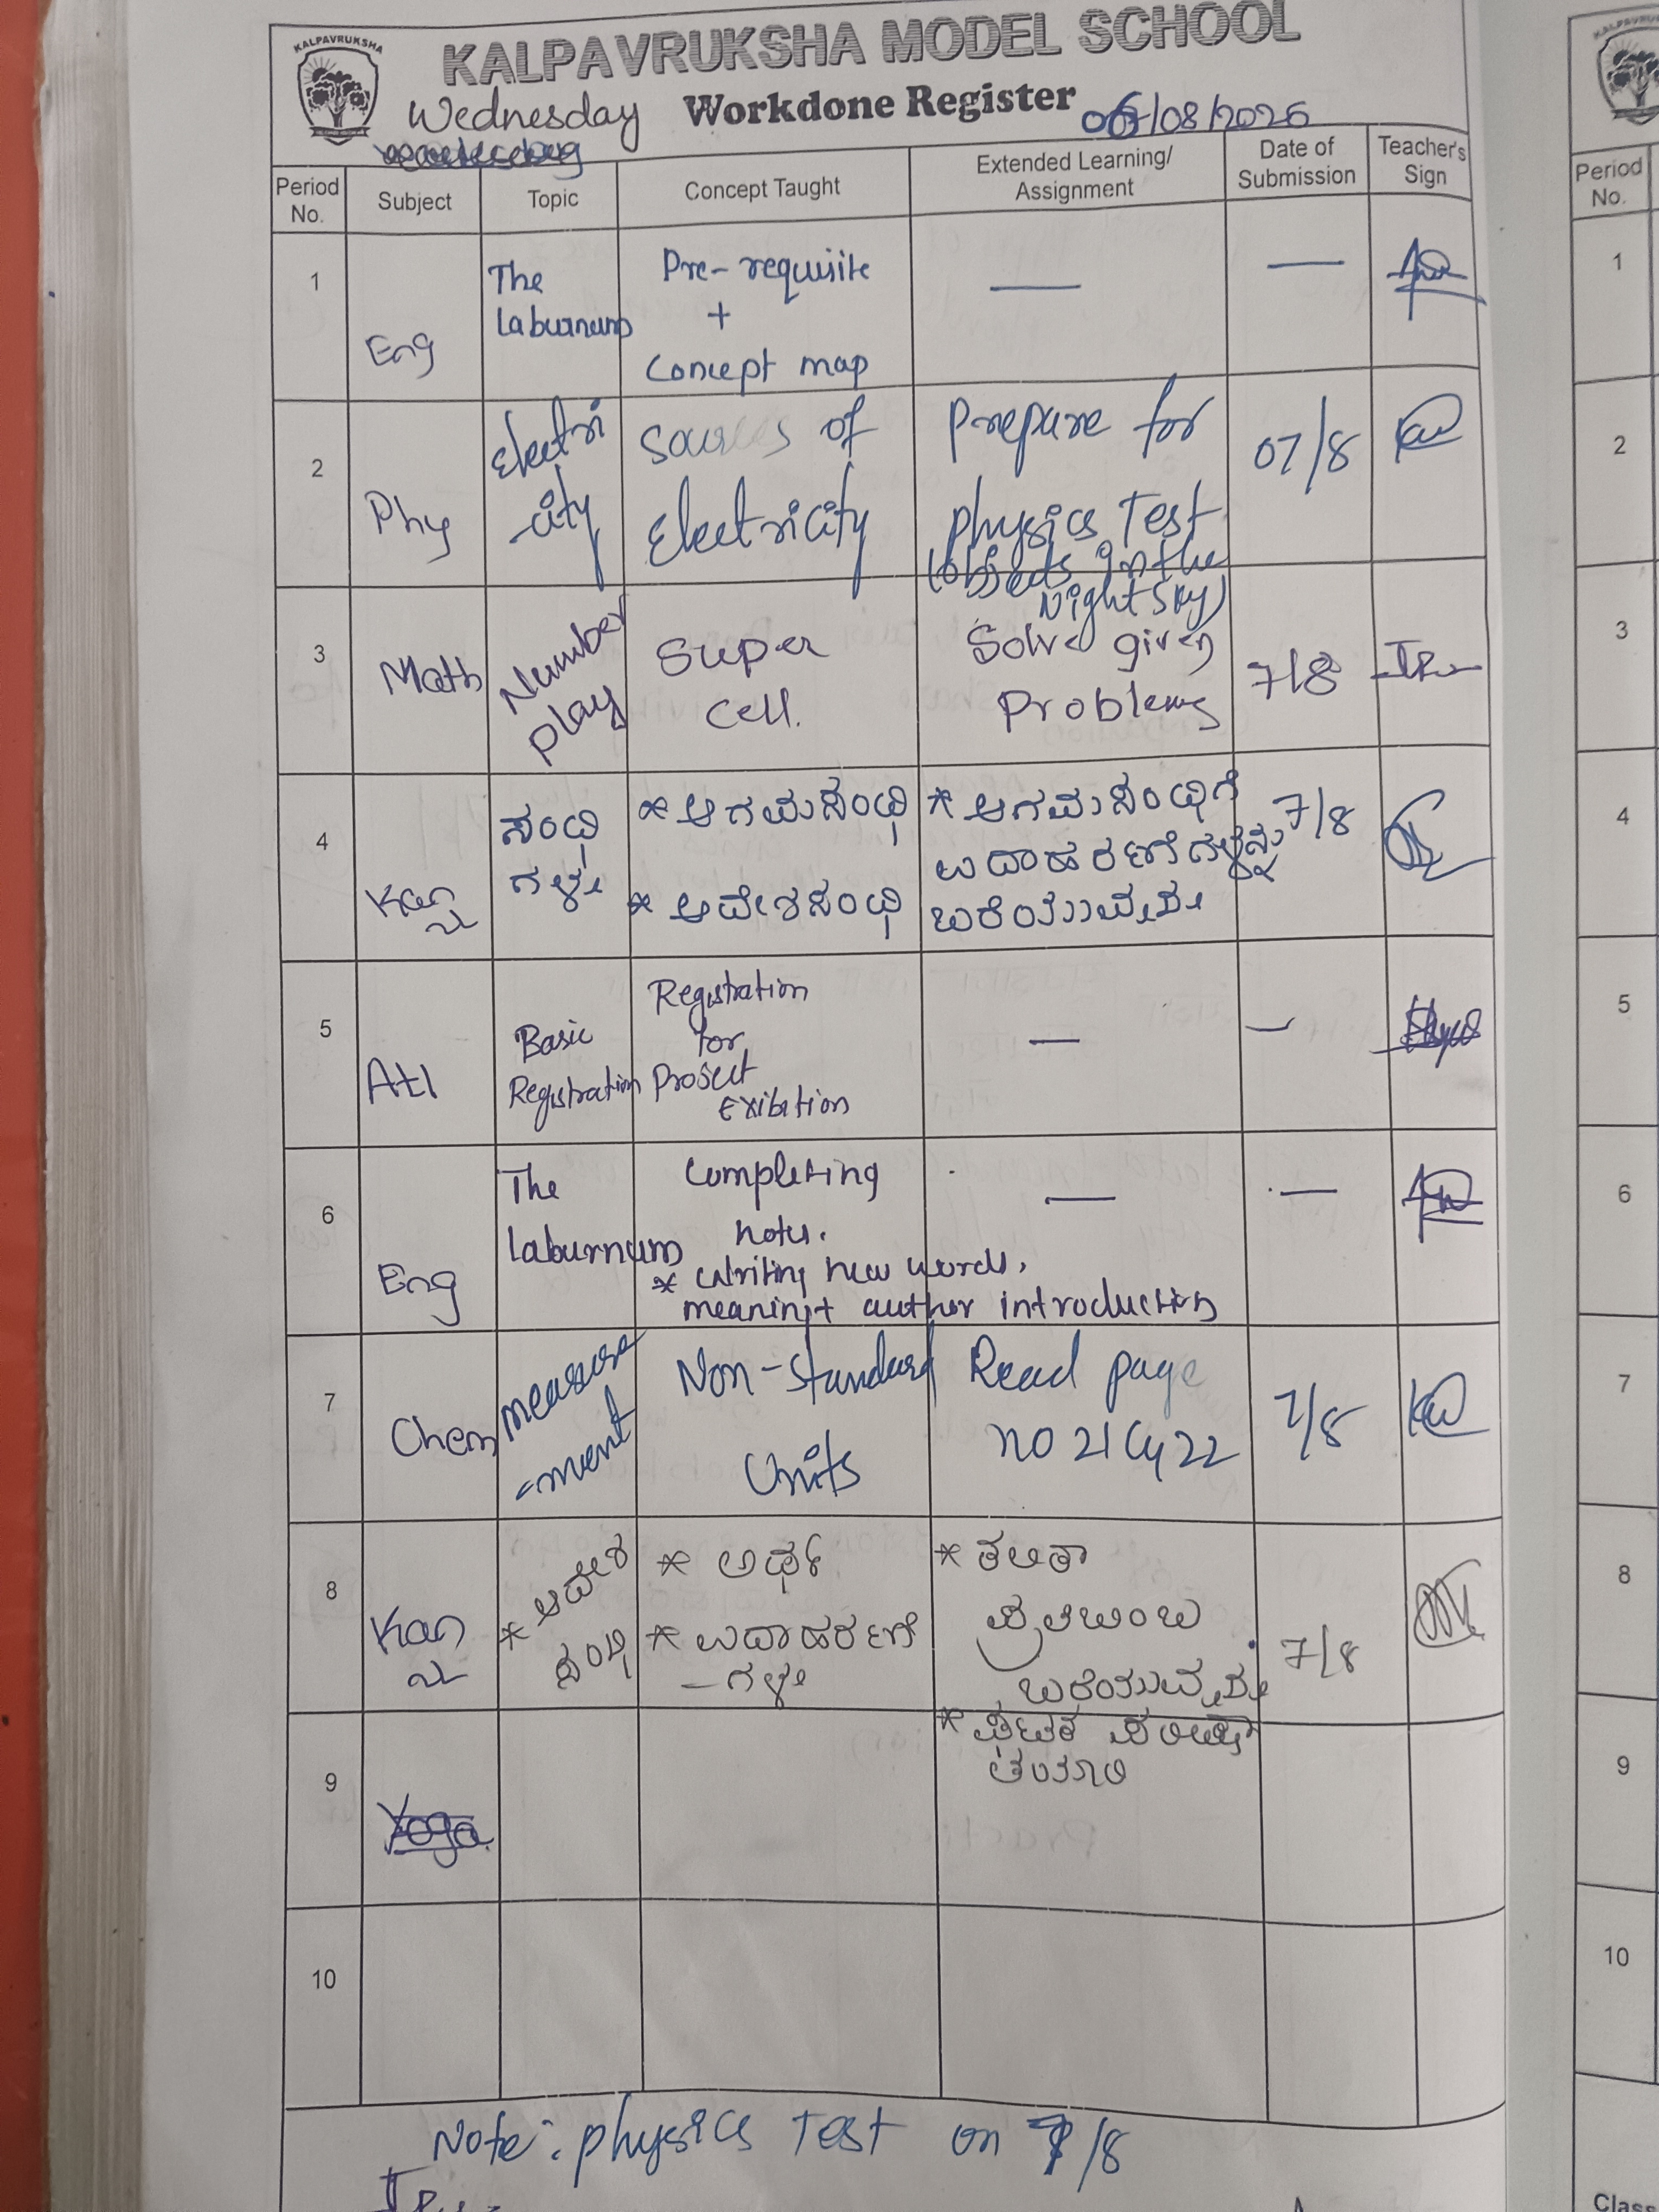 KALPAVRUKSHA
KALPAVRUKSHA MODEL SCHOOL
Wednesday Workdone Register 06/08/2025
Period No. Subject Topic Concept Taught Extended Learning/ Assignment Date of Submission Teacher's Sign
1 Eng The Laburnum Pre-requisite + Concept map — —
2 Phy Electri-city Sources of Electricity Prepare for physics Test (objects in the Night Sky) 07/8
3 Math Number play Super cell. Solve given Problems 7/8
4 Kan ಸಂಧಿಗಳು * ಆಗಮಸಂಧಿ * ಆದೇಶಸಂಧಿ * ಆಗಮ ಸಂಧಿಗೆ ಉದಾಹರಣೆಗಳನ್ನು ಬರೆಯುವುದು 7/8
5 Atl Basic Registration Registration for Project Exibition — —
6 Eng The Laburnum Completing notes. * Writing new words, meaning + author introduction — —
7 Chem measure-ment Non-Standard Units Read page no 21 & 22 7/8
8 Kan * ಆದೇಶ ಸಂಧಿ * ಅರ್ಥ * ಉದಾಹರಣೆ-ಗಳು * ಬರೆಯುವುದು 7/8
9 Yoga
10
Note: physics Test on 7/8
Period No.
1
2
3
4
5
6
7
8
9
10
Class